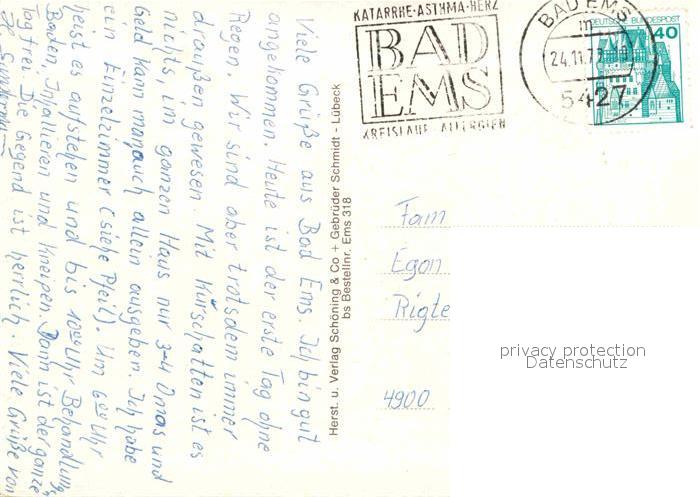 KATARRHE·ASTHMA·HERZ
BAD
EMS
KREISLAUF ALLERGIEN
BAD EMS
m
24.11.7
5427
DEUTSCHE BUNDESPOST
40
Viele Grüße aus Bad Ems. Ich bin gut
angekommen. Heute ist der erste Tag ohne
Regen. Wir sind aber trotsdem immer
draußen gewesen. Mit Kurschatten ist es
nichts, im ganzen Haus nur 3-4 Omas und
Geld kann man auch allein ausgeben. Ich habe
ein Einzelzimmer (siehe Pfeil). Um 6 00 Uhr
heist es aufstehen und bis 10 00 Uhr Behandlung,
Baden, Inhallieren und kneipen. Dann ist der ganze
Tag frei. Die Gegend ist herrlich. Viele Grüße von
Herst. u. Verlag Schöning & Co + Gebrüder Schmidt - Lübeck
bs Bestellnr. Ems 318
Fam
Egon
Rigte
4900
privacy protection
Datenschutz